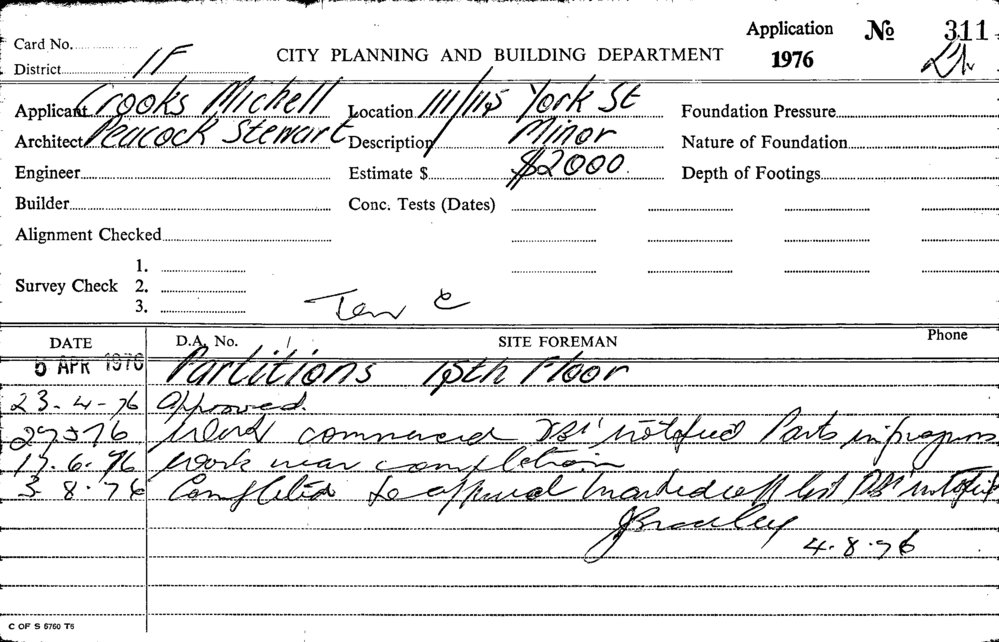 Card No. Application No 311
District 1F CITY PLANNING AND BUILDING DEPARTMENT 1976
Applicant Crooks Michell Location 111/115 York St Foundation Pressure
Architect Peacock Stewart Description Minor Nature of Foundation
Engineer Estimate $ $2000 Depth of Footings
Builder Conc. Tests (Dates)
Alignment Checked
1.
Survey Check 2.
3.
DATE D.A. No. SITE FOREMAN Phone
5 APR 1976 Partitions 15th Floor
23-4-76 Approved.
27 5 76 Work commenced notified Parts in progress
17.6.76 Work near completion
3 8.76 Completed to approval marked off list notified
JBradley
4.8.76
C OF S 5760 T5